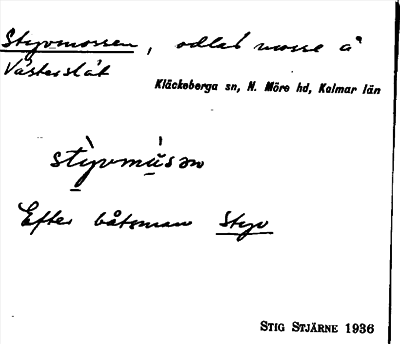 Styvmossen, odlad mosse å
Västerslät
Kläckeberga sn, N. Möre hd, Kalmar län
stỳvmùsən
Efter båtsman Styv
STIG STJÄRNE 1936